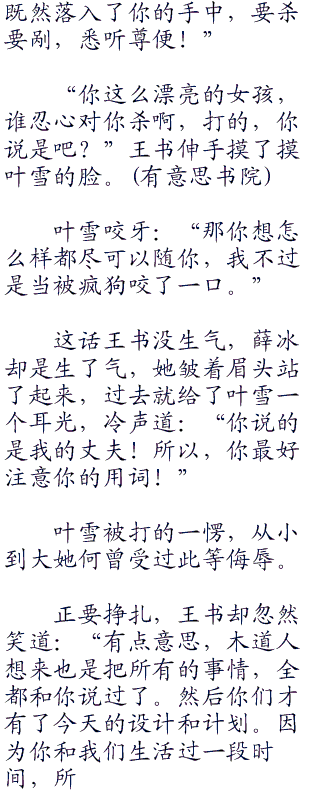 既然落入了你的手中，要杀
要剐，悉听尊便！”
“你这么漂亮的女孩，
谁忍心对你杀啊，打的，你
说是吧？”王书伸手摸了摸
叶雪的脸。(有意思书院)
叶雪咬牙：“那你想怎
么样都尽可以随你，我不过
是当被疯狗咬了一口。”
这话王书没生气，薛冰
却是生了气，她皱着眉头站
了起来，过去就给了叶雪一
个耳光，冷声道：“你说的
是我的丈夫！所以，你最好
注意你的用词！”
叶雪被打的一愣，从小
到大她何曾受过此等侮辱。
正要挣扎，王书却忽然
笑道：“有点意思，木道人
想来也是把所有的事情，全
都和你说过了。然后你们才
有了今天的设计和计划。因
为你和我们生活过一段时
间，所